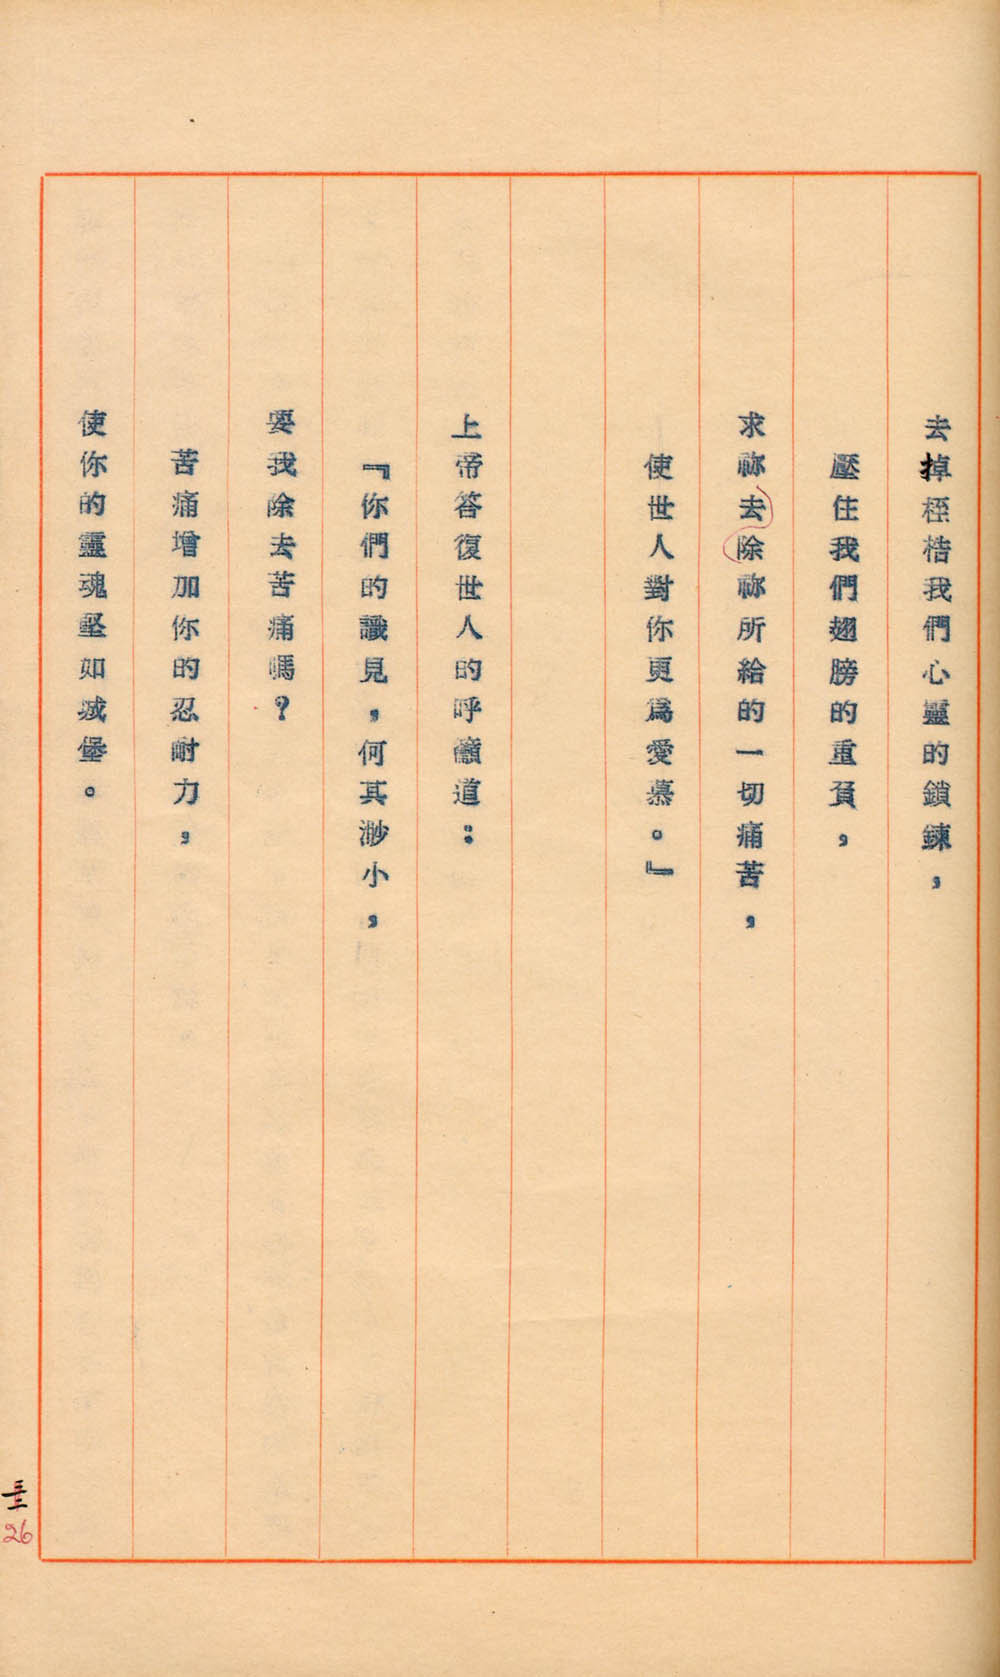 去掉桎梏我們心靈的鎖鍊，
壓住我們翅膀的重負，
求祢去除祢所給的一切痛苦，
使世人對你更爲愛慕。』
上帝答復世人的呼籲道：
『你們的識見，何其渺小，
要我除去苦痛嗎？
苦痛增加你的忍耐力，
使你的靈魂堅如城堡。
26